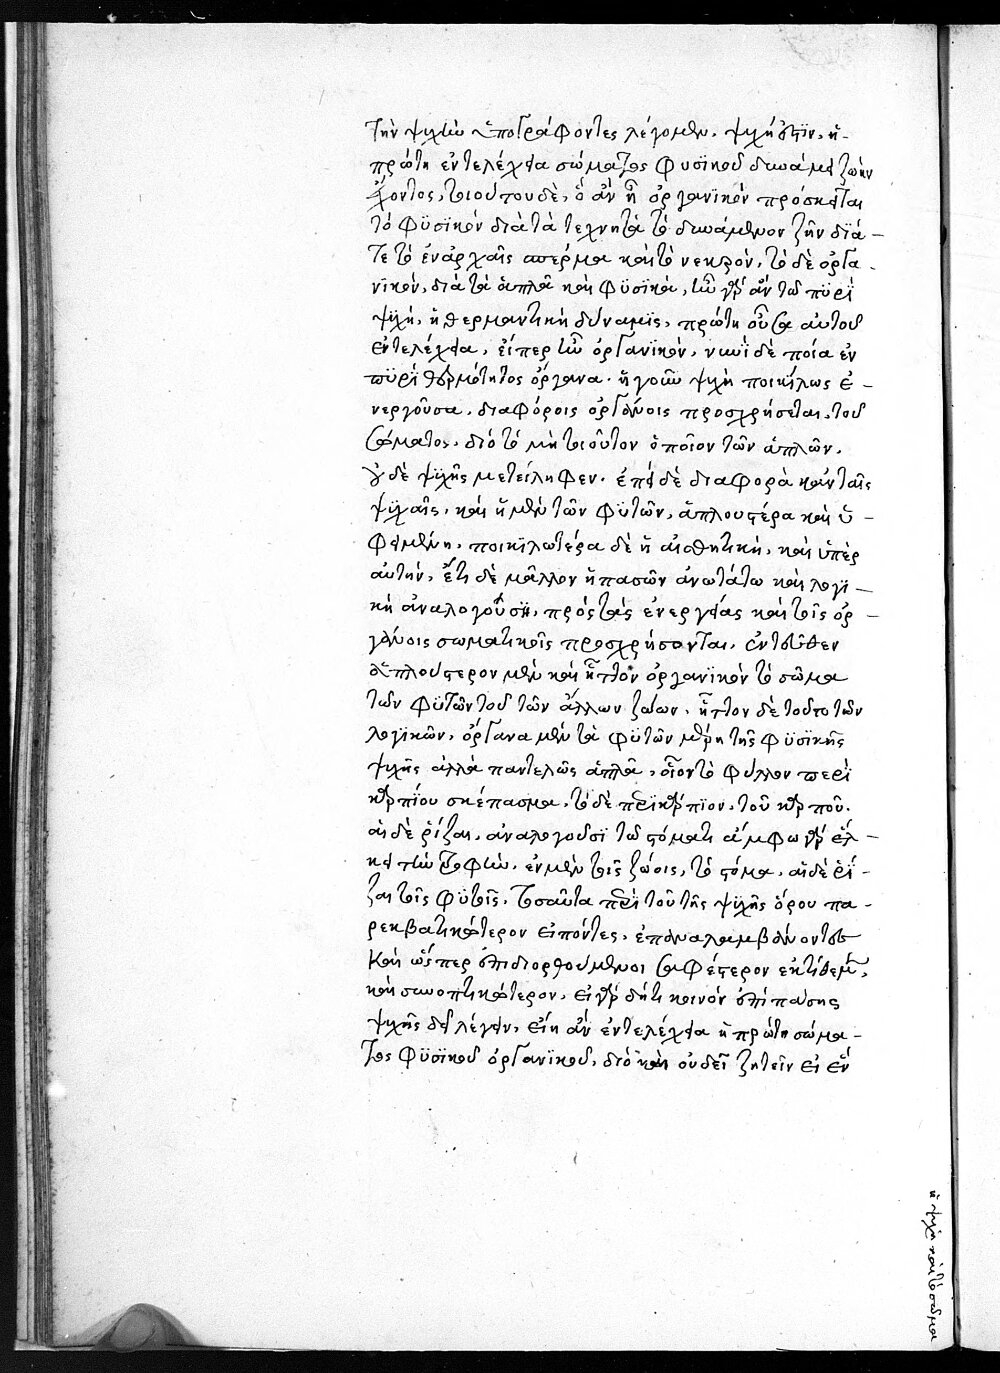 Τὴν ψυχὴν ὑπογράφοντες λέγομεν, ψυχή ἐστϊν, ἡ
πρώτη ἐντελέχεια σώματος φυσϊκοῦ δυνάμει ζωὴν
ἔχοντος, τοιοῦτου δὲ, ὃ ἂν ἦ ὀργανϊκὸν πρόσκειται
τὸ φϋσϊκὸν διὰ τὰ τεχνητὰ τὸ δυνάμενον ζῆν δϊά-
τε τὸ ἐν ἀρχαῖς σπέρμα καὶ τὸ νεκρὸν, τὸ δὲ ὀργα-
νϊκὸν, διὰ τὰ ἁπλᾶ καὶ φϋσϊκὰ, ἦν γὰρ ἂν τῶ πϋρὶ
ψϋχὴ, ἡ θερμαντϊκὴ δύναμϊς, πρώτη οὖσα αὐτοῦ
ἐντελέχεια, εἴπερ ἦν ὀργανϊκὸν, νυνῒ δὲ ποία ἐν
πϋρῒ θερμότητος ὄργανα. ἡ γοῦν ψυχὴ ποικίλως ἐ-
νεργοῦσα, διαφόροις ὀργάνοις προσχρήσεται, τοῦ
σώματος. διὸ τὸ μὴ τοιοῦτον ὁποῖον τῶν ἁπλῶν,
οὐδὲ ψϋχῆς μετείληφεν. ἐπεὶ δὲ διαφορὰ κἀν ταῖς
ψϋχαῖς, καὶ ἡ μὲν τῶν φϋτῶν, ἁπλουστέρα καὶ ὑ-
φειμένη, ποικϊλωτέρα δὲ ἡ αἰσθητϊκὴ, καὶ ὑπὲρ
αὐτὴν, ἔτι δὲ μᾶλλον ἡ πασῶν ἀνωτάτω καὶ λογϊ-
κὴ ἀναλογοῦσϊ, πρὸς τὰς ἐνεργείας καὶ τοῖς ὀρ-
γάνοις σωματικοῖς προσχρήσονται. ἐντεῦθεν
ἁπλούστερον μὲν καὶ ἧττον ὀργανϊκὸν τὸ σῶμα
τῶν φϋτῶν τοῦ τῶν ἄλλων ζώων. ἧττον δὲ τοῦτο τῶν
λογϊκῶν, ὄργανα μὲν τὰ φϋτῶν μέρη τῆς φϋσϊκῆς
ψϋχῆς ἀλλὰ παντελῶς ἁπλᾶ, οἷον τὸ φύλλον περὶ
καρπίου σκέπασμα, τὸ δὲ περικάρπϊον, τοῦ καρποῦ.
αἱ δὲ ῥίζαι, ἀναλογοῦσϊ τῶ στόματι ἄμφω γὰρ ἕλ-
κει τὴν τροφὴν. ἐν μὲν τοῖς ζώοις, τὸ στόμα, αἱ δὲ ῥί-
ζαι τοῖς φϋτοῖς. Τοσαῦτα περὶ τοῦ τῆς ψϋχῆς ὅρου πα-
ρεκβατικώτερον εἰπόντες, ἐπαναλαμβάνοντες
καὶ ὥσπερ ἐπιδιορθούμενοι σαφέστερον ἐκτϊθέμεθα,
καὶ συνοπτϊκώτερον, εἰ γὰρ δήτι κοινὸν ἐπὶ πάσης
ψϋχῆς δεῖ λέγειν, εἴη ἂν ἐντελέχεια ἡ πρώτη σώμα-
τος φϋσϊκοῦ ὀργανϊκοῦ, διὸ καὶ οὐ δεῖ ζητεῖν εἰ ἓν
ἡ ψυχὴ καὶ τὸ σῶμα